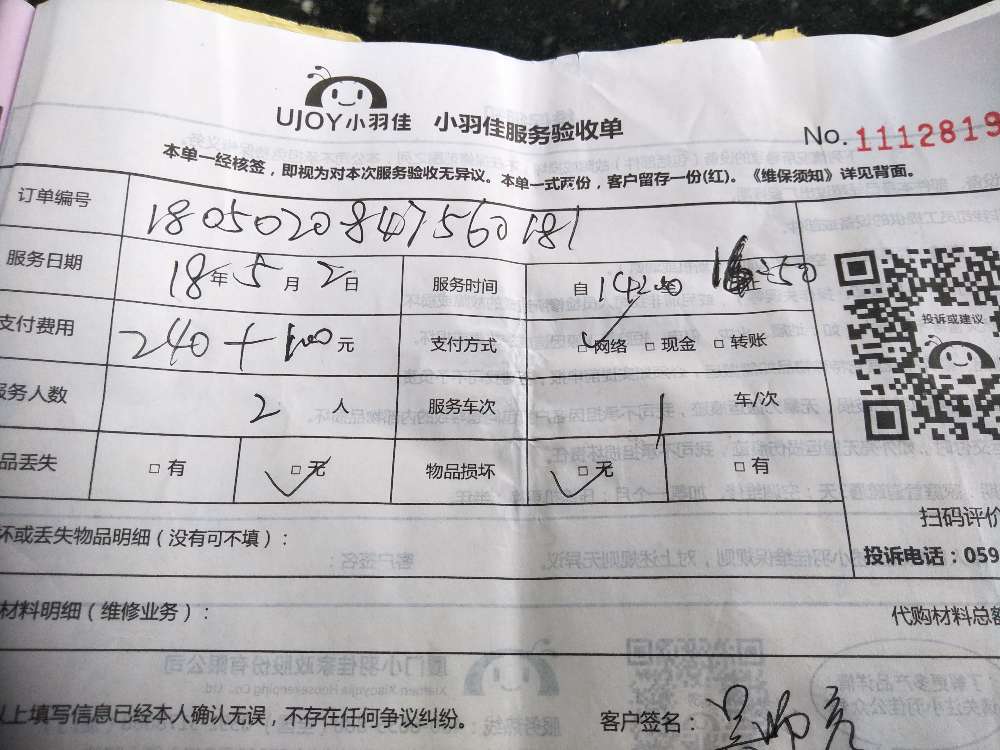 UJOY小羽佳 小羽佳服务验收单
No. 1112819
本单一经核签，即视为对本次服务验收无异议。本单一式两份，客户留存一份(红)。《维保须知》详见背面。
订单编号 1805020847560181
服务日期 18年5月2日 服务时间 自14:00 止 :50
支付费用 240+100元 支付方式 □网络 □现金 □转账
服务人数 2人 服务车次 1 车/次
品丢失 □有 □无 物品损坏 □无 □有
坏或丢失物品明细（没有可不填）：
材料明细（维修业务）：
代购材料总额
以上填写信息已经本人确认无误，不存在任何争议纠纷。
客户签名：
投诉或建议
扫码评价
投诉电话：059